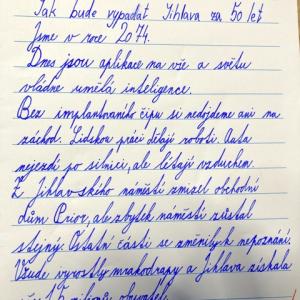 Jak bude vypadat Jihlava za 50 let
Jsme v roce 2074.
Dnes jsou aplikace na vše a světu
vládne umělá inteligence.
Bez implantovaního čipu si nedojdeme ani na
záchod. Lidskou práci dělají roboti. Auta
nejezdí po silnici, ale létají vzduchem.
Z Jihlavského náměstí zmizel obchodní
dům Prior, ale zbytek náměstí zůstal
stejný. Ostatní části se změnily k nepoznání.
Všude vyrostly mrakodrapy a Jihlava získala